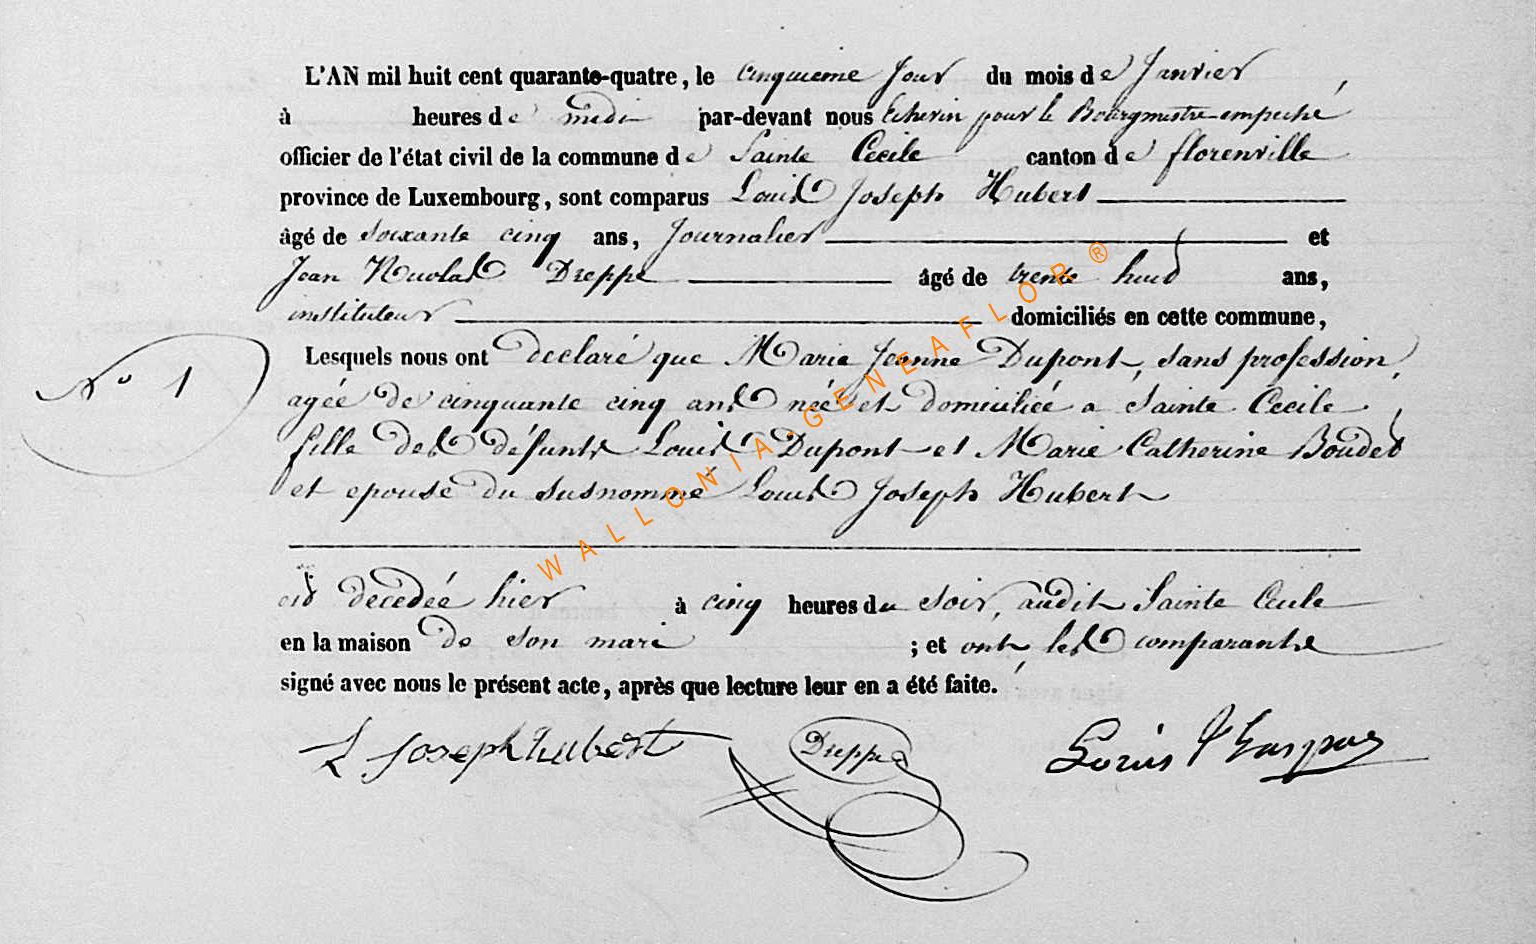 L'AN mil huit cent quarante-quatre, le cinquieme jour du mois de Janvier
à heures de midi par-devant nous Echevin pour le Bourgmestre empeché
officier de l'état civil de la commune de Sainte Cecile canton de florenville
province de Luxembourg, sont comparus Louis Joseph Hubert
âgé de soixante cinq ans, Journalier et
Jean Nicolas Dreppe âgé de trente huit ans,
instituteur domiciliés en cette commune,
N° 1
Lesquels nous ont declaré que Marie Jeanne Dupont, sans profession,
agée de cinquante cinq ans née et domiciliée a Sainte Cecile
fille des défunts Louis Dupont et Marie Catherine Boudet
et epouse du susnommé Louis Joseph Hubert
est decedée hier à cinq heures du soir, audit Sainte Cecile
en la maison de son mari ; et ont les comparants
signé avec nous le présent acte, après que lecture leur en a été faite.
L Joseph hubert Dreppe Louis
WALLONIA.GENEAFLOR®